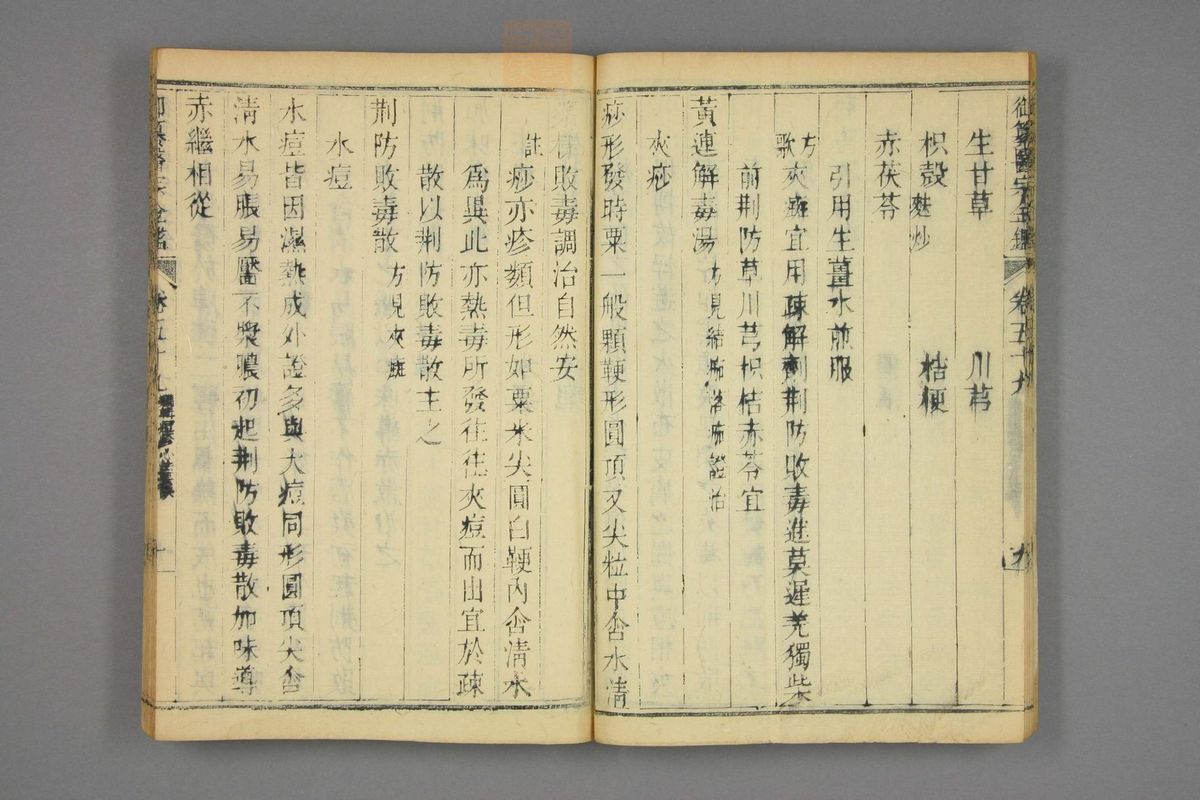 御纂醫宗金鑑 卷五十九 九
生甘草 川芎
枳殼 麩炒 桔梗
赤茯苓
引用生薑水煎服
方歌 夾癍宜用疎解劑荆防敗毒進莫遲羌獨柴
前荆防草川芎枳桔赤苓宜
黃連解毒湯 方見結痂落痂證治
夾疹
疹形發時粟一般顆鞕形圓頂又尖粒中含水清
敗毒調治自然安
註 疹亦疹類但形如粟米尖圓白鞕內含清水
爲異此亦熱毒所發往往夾痘而出宜於疎
散以荆防敗毒散主之
荆防敗毒散 方見夾癍
水痘
水痘皆因濕熱成外證多與大痘同形圓頂尖含
清水易脹易靨不漿膿初起荆防敗毒散加味導
赤繼相從
御纂醫宗金鑑 卷五十九